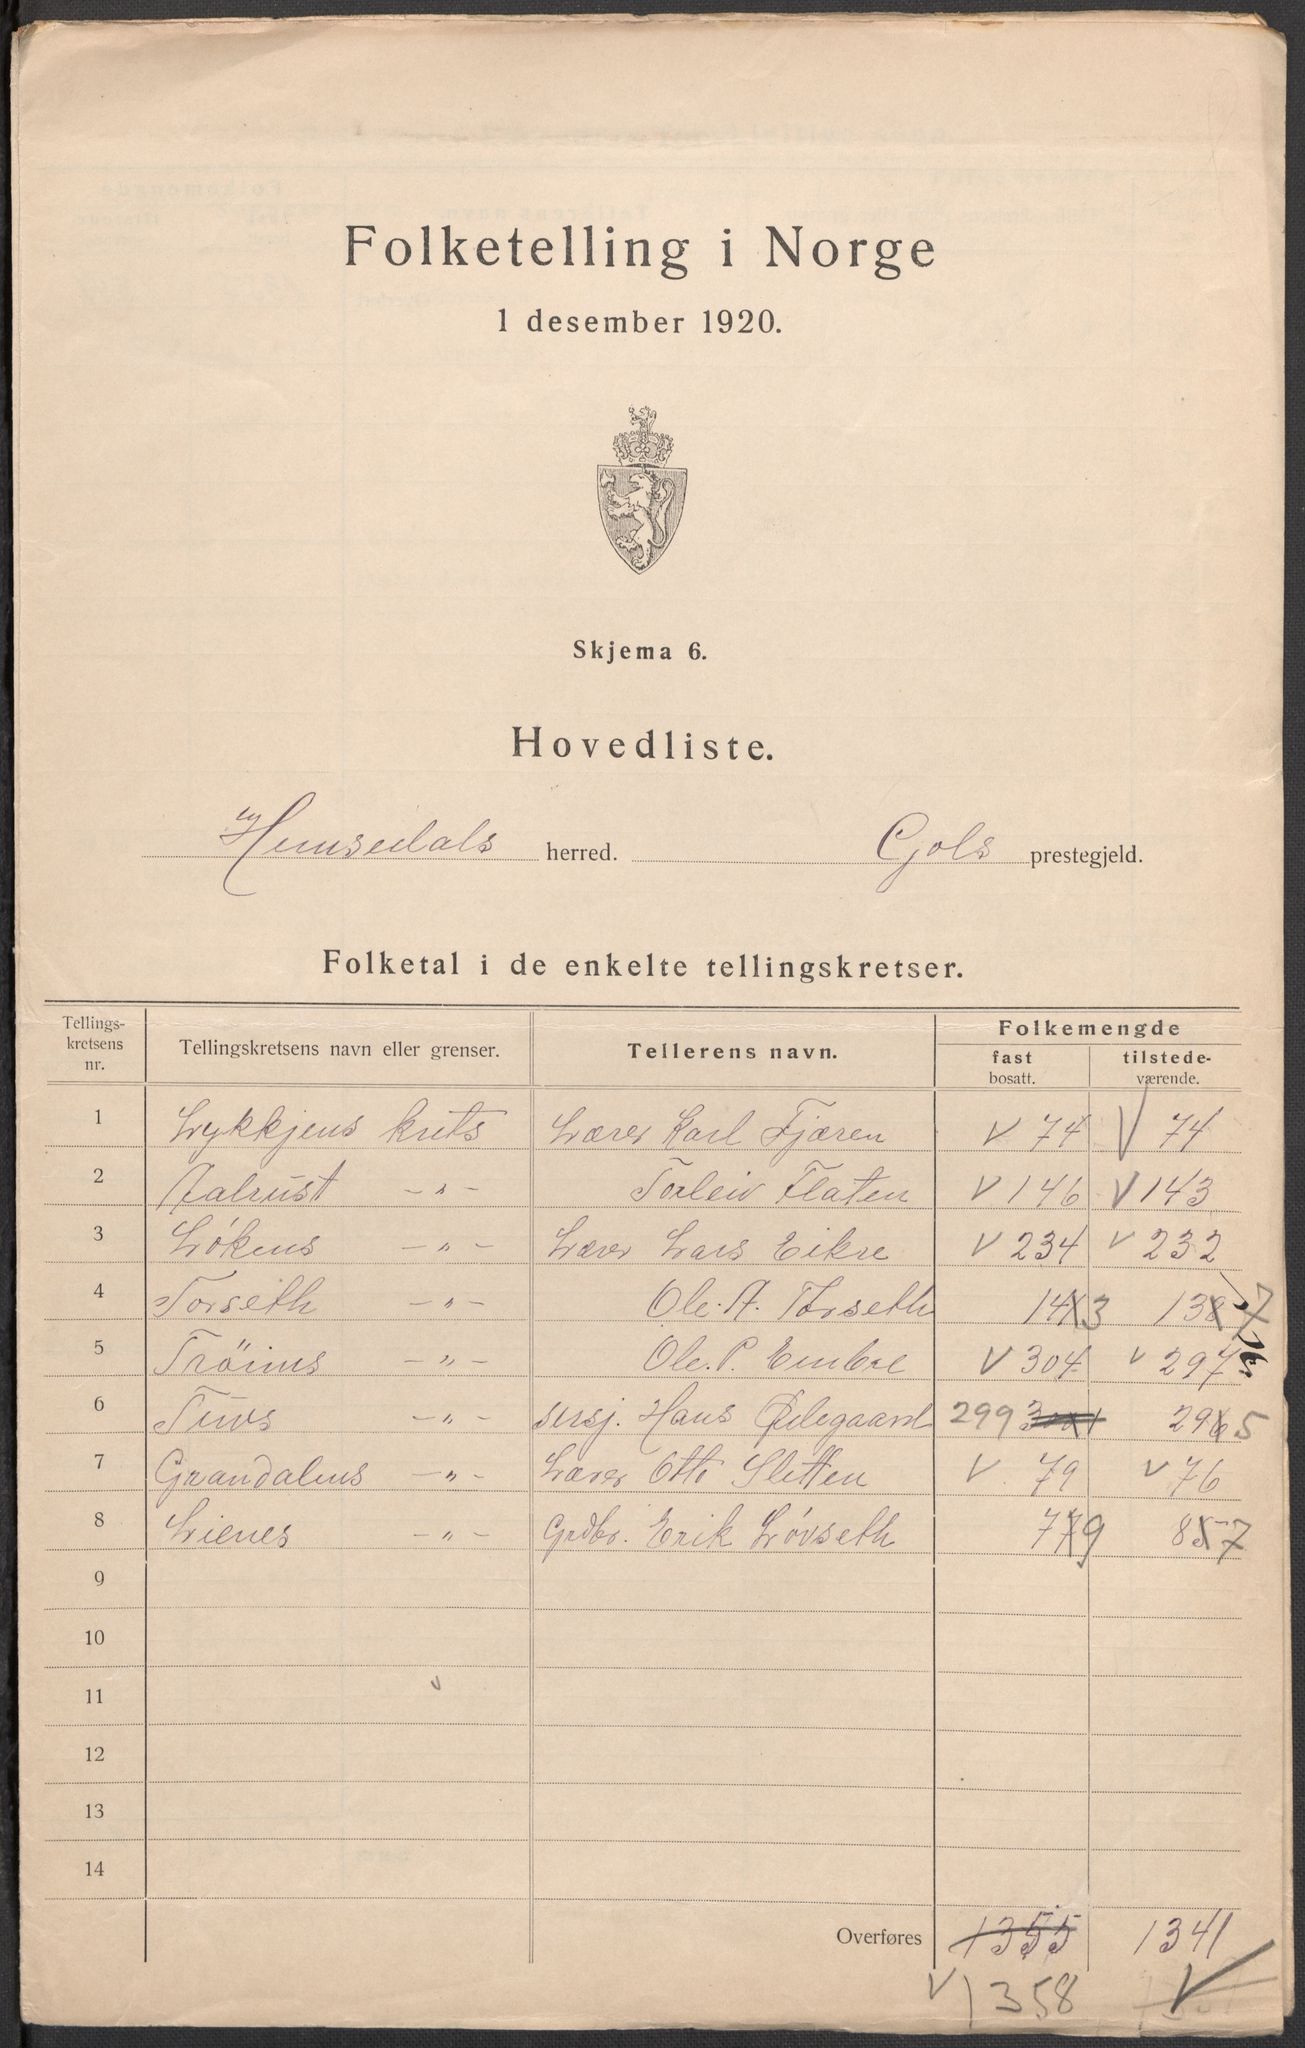 Folketelling i Norge
1 desember 1920.
Skjema 6.
Hovedliste.
Hemsedals herred. Gols prestegjeld.
Folketal i de enkelte tellingskretser.
Tellings-
kretsens
nr.
Tellingskretsens navn eller grenser.
Tellerens navn.
Folkemengde
fast
bosatt.
tilstede-
værende.
1 Lykkjens krets Lærer Karl Fjæren V 74 V 74
2 Aalrust -"- Torleiv Flaten V 146 V 143
3 Løkens -"- Lærer Lars Eikre V 234 V 232
4 Torseth -"- Ole. A. Torseth 143 137
5 Tröims -"- Ole. P. Embre V 304 V 297
6 Tuvs -"- sersj. Hans Ødegaard 299 295
7 Grøndalens -"- Lærer Otto Sletten V 79 V 76
8 Lienes -"- Grdbr. Erik Løvseth 79 87
9
10
11
12
13
14
Overføres 1355 1341
V 1358 V